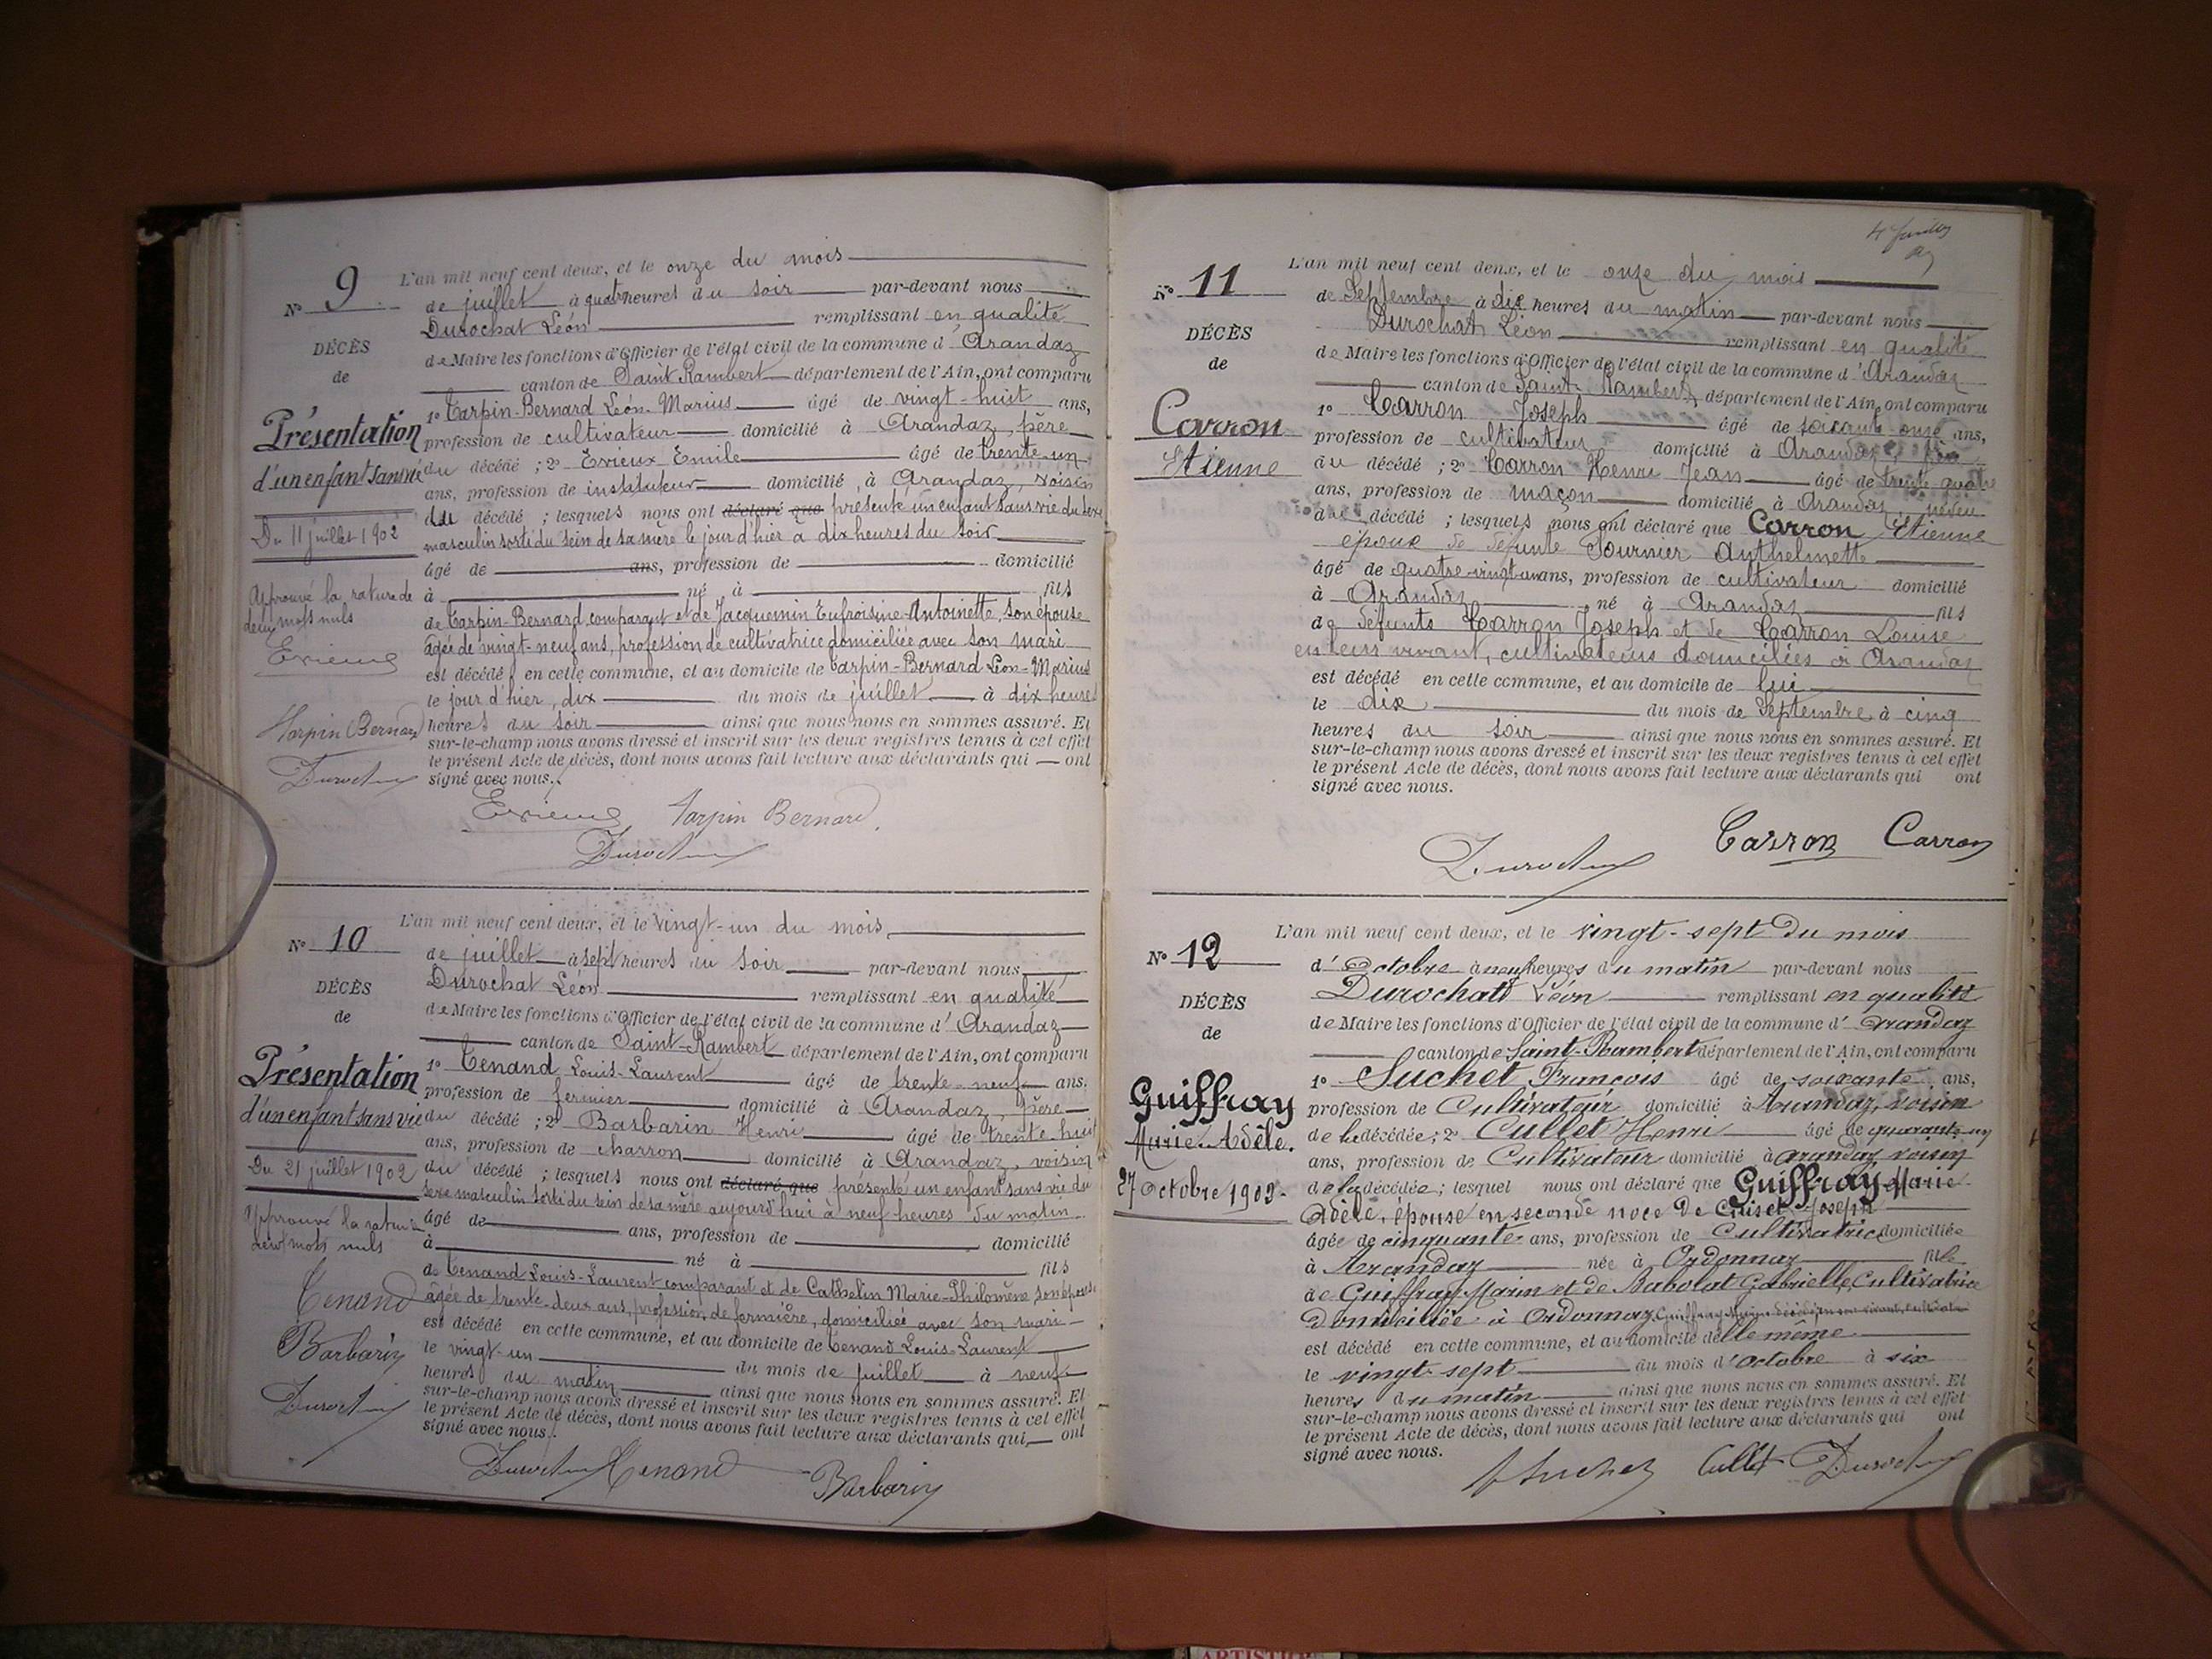 N° 9
DÉCÈS
de
Présentation
d'un enfant sans vie
Du 11 juillet 1902
Approuvé la rature de
deux mots nuls
Evieux
Tarpin Bernard
L'an mil neuf cent deux, et le onze du mois
de juillet à quatre heures du soir par-devant nous
Durochat Léon remplissant en qualité
de Maire les fonctions d'Officier de l'état civil de la commune d'Arandaz
canton de Saint-Rambert département de l'Ain, ont comparu
1° Tarpin-Bernard Léon-Marius âgé de vingt-huit ans,
profession de cultivateur domicilié à Arandaz, père
du décédé ; 2° Evieux Emile âgé de trente-un
ans, profession de instituteur domicilié, à Arandaz, voisin
du décédé ; lesquels nous ont déclaré que présenté un enfant sans vie du sexe
masculin sorti du sein de sa mère le jour d'hier à dix heures du soir
âgé de ans, profession de domicilié
à né à fils
de Tarpin-Bernard, comparant et de Jacquemin Eufroisine-Antoinette, son épouse
âgée de vingt-neuf ans, profession de cultivatrice domiciliée avec son mari
est décédé en cette commune, et au domicile de Tarpin-Bernard Léon-Marius
le jour d'hier, dix du mois de juillet à dix heures
heures du soir ainsi que nous nous en sommes assuré. Et
sur-le-champ nous avons dressé et inscrit sur les deux registres tenus à cet effet
le présent Acte de décès, dont nous avons fait lecture aux déclarants qui ont
signé avec nous.
Evieux Tarpin Bernard
N° 10
DÉCÈS
de
Présentation
d'un enfant sans vie
Du 21 juillet 1902
Approuvé la rature
deux mots nuls
Tenand
Barbarin
L'an mil neuf cent deux, et le vingt-un du mois
de juillet à sept heures du soir par-devant nous
Durochat Léon remplissant en qualité
de Maire les fonctions d'Officier de l'état civil de la commune d'Arandaz
canton de Saint-Rambert département de l'Ain, ont comparu
1° Tenand Louis-Laurent âgé de trente-neuf ans,
profession de fermier domicilié à Arandaz, père
du décédé ; 2° Barbarin Henri âgé de trente-huit
ans, profession de charron domicilié à Arandaz, voisin
du décédé ; lesquels nous ont déclaré que présenté un enfant sans vie du
sexe masculin sorti du sein de sa mère aujourd'hui à neuf heures du matin
âgé de ans, profession de domicilié
à né à fils
de Tenand Louis-Laurent comparant et de Cathelin Marie-Philomène, son épouse
âgée de trente-deux ans, profession de fermière, domiciliée avec son mari
est décédé en cette commune, et au domicile de Tenand Louis-Laurent
le vingt-un du mois de juillet à neuf
heures du matin ainsi que nous nous en sommes assuré. Et
sur-le-champ nous avons dressé et inscrit sur les deux registres tenus à cet effet
le présent Acte de décès, dont nous avons fait lecture aux déclarants qui ont
signé avec nous.
Tenand
Barbarin
N° 11
DÉCÈS
de
Carron
Etienne
L'an mil neuf cent deux, et le onze du mois
de Septembre à dix heures du matin par-devant nous
Durochat Léon remplissant en qualité
de Maire les fonctions d'Officier de l'état civil de la commune d'Arandaz
canton de Saint-Rambert, département de l'Ain, ont comparu
1° Carron Joseph âgé de soixante-onze ans,
profession de cultivateur domicilié à Arandaz,
du décédé ; 2° Carron Henri Jean âgé de trente quatre
ans, profession de maçon domicilié à Arandaz, neveu
du décédé ; lesquels nous ont déclaré que Carron Etienne
époux de défunte Fournier Anthelmette
âgé de quatre-vingt un ans, profession de cultivateur domicilié
à Arandaz, né à Arandaz fils
de défunts Carron Joseph et de Carron Louise
en leur vivant, cultivateurs domiciliés à Arandaz
est décédé en cette commune, et au domicile de lui
le dix du mois de Septembre à cinq
heures du soir ainsi que nous nous en sommes assuré. Et
sur-le-champ nous avons dressé et inscrit sur les deux registres tenus à cet effet
le présent Acte de décès, dont nous avons fait lecture aux déclarants qui ont
signé avec nous.
Carron Carron
N° 12
DÉCÈS
de
Guiffray
Marie Adèle.
27 Octobre 1902.
L'an mil neuf cent deux, et le vingt-sept du mois
d'Octobre à neuf heures du matin par-devant nous
Durochat Léon remplissant en qualité
de Maire les fonctions d'Officier de l'état civil de la commune d'Arandaz
canton de Saint-Rambert département de l'Ain, ont comparu
1° Suchet François âgé de soixante ans,
profession de Cultivateur domicilié à Arandaz, voisin
de la décédée ; 2° Cullet Henri âgé de quarante-un
ans, profession de Cultivateur domicilié à Arandaz voisin
de la décédée ; lesquel nous ont déclaré que Guiffray Marie
Adèle, épouse en seconde noce de Cuiset Joseph
âgée de cinquante ans, profession de Cultivatrice domiciliée
à Arandaz née à Ordonnaz fille
de Guiffray Marin et de Babolat Gabrielle, Cultivatrice
domiciliée à Ordonnaz
est décédé en cette commune, et au domicile d'elle même
le vingt-sept du mois d'Octobre à six
heures du matin ainsi que nous nous en sommes assuré. Et
sur-le-champ nous avons dressé et inscrit sur les deux registres tenus à cet effet
le présent Acte de décès, dont nous avons fait lecture aux déclarants qui ont
signé avec nous.
Suchet Cullet
ARTISTIQUE